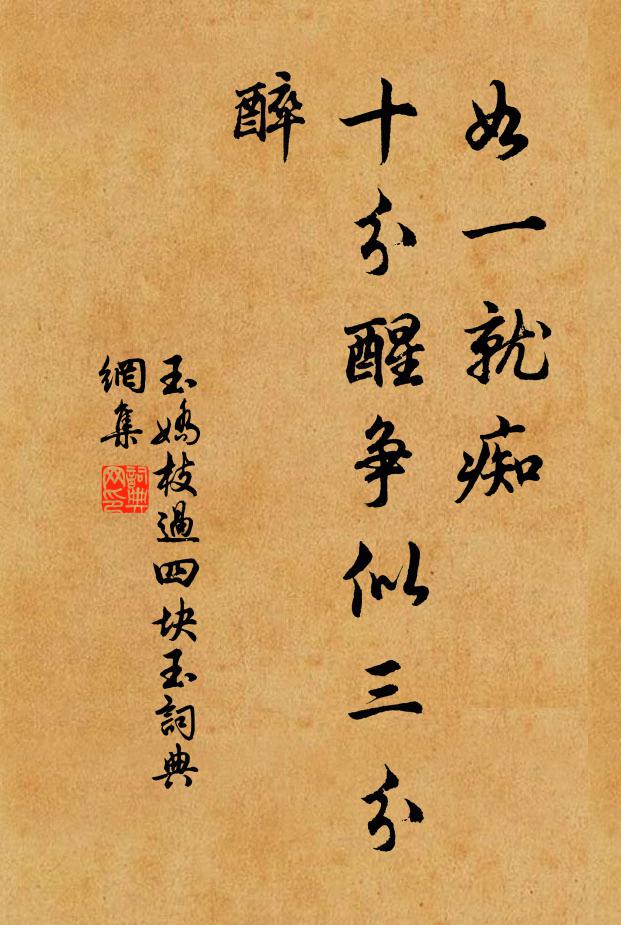 如一就痴
十分醒争似三分
醉
玉嬌枝過四块玉詞典
網集
詞典
网印